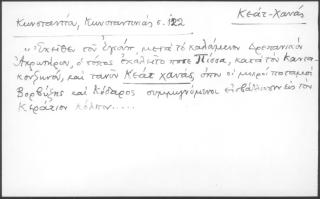 Κεάτ-Χανάς
Κωνσταντία, Κωνσταντινιάς σ. 122
"Ἐκεῖθεν τοῦ μετὰ τὸ καλούμενον Δρεπανικὸν
Ἀκρωτήριον, ὁ τόπος ἐκαλεῖτο ποτὲ Πίσσα, κατὰ τὸν Καντα-
κουζηνόν, καὶ τανῦν Κεὰτ χανὰς, ὅπου οἱ μικροὶ ποταμοὶ
Βορβύζης καὶ Κύδαρος συμμιγνύμενοι εἰσβάλλουσιν εἰς τὸν
Κεράτιον κόλπον.....